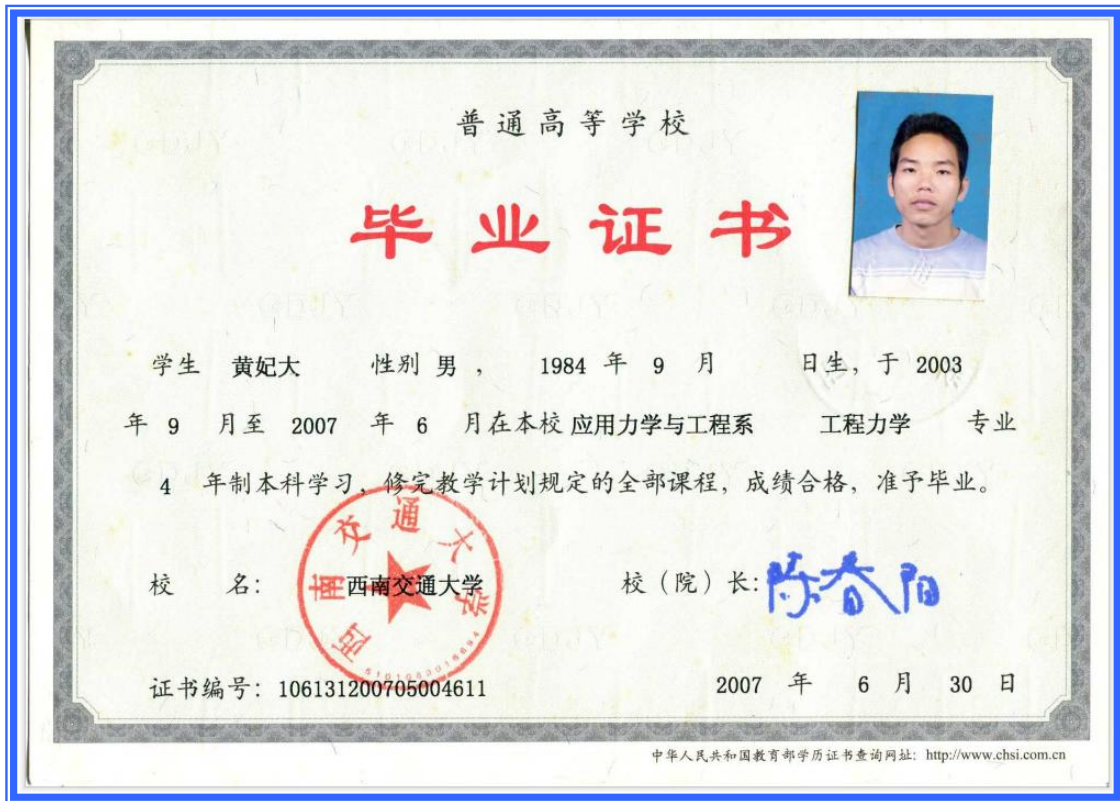 普通高等学校
毕业证书
学生 黄妃大 性别 男 , 1984 年 9 月 日生, 于 2003
年 9 月至 2007 年 6 月在本校 应用力学与工程系 工程力学 专业
4 年制本科学习, 修完教学计划规定的全部课程, 成绩合格, 准予毕业。
校 名: 西南交通大学 校(院)长: 陈春阳
西南交通大学
证书编号: 106131200705004611 2007 年 6 月 30 日
中华人民共和国教育部学历证书查询网址: http://www.chsi.com.cn